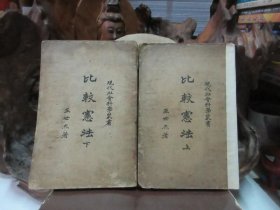 現代社會科學叢書
比較憲法
上
王世杰著
現代社會科學叢書
比較憲法
下
王世杰著